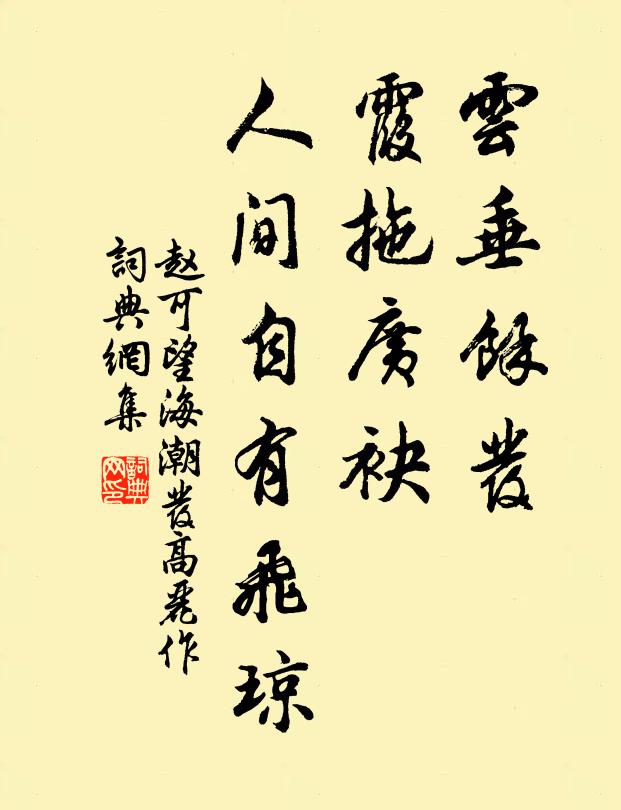 雲垂餘發
霞拖廣袂
人间自有飛瓊
赵可望海潮發高麗作
詞典網集
詞典網印